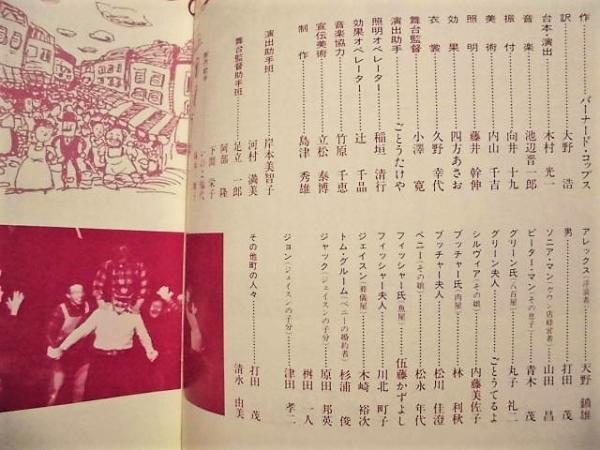 作………バーナード・コップス
訳………大野 浩
台本・演出………木村 光一
音楽………池辺晋一郎
振付………向井 十九
美術………内山 千吉
照明………藤井 幹伸
効果………四方あさお
衣裳………久野 幸代
舞台監督………小澤 寛
演出助手………ごとうたけや
照明オペレーター………稲垣 清行
効果オペレーター………辻 千晶
音楽協力………竹原 千恵
宣伝美術………立松 泰博
制作………島津 秀雄
演出助手班………岸本美智子
河村 満美
舞台監督助手班………足立 一郎
阿部 隆
下間 栄子
アレックス(浮浪者)………天野 鎮雄
男………打田 茂
ソニア・マン(ガウン店経営者)………山田 昌
ピーター・マン(その息子)………青木 茂
グリーン氏(八百屋)………丸子 礼二
グリーン夫人………ごとうてるよ
シルヴィア(その娘)………内藤美佐子
ブッチャー氏(肉屋)………林 利秋
ブッチャー夫人………松川 佳澄
ペニー(その娘)………松永 年代
フィッシャー氏(魚屋)………伍藤かずよし
フィッシャー夫人………川北 町子
ジェイスン(葬儀屋)………木崎 裕次
トム・グルーム(ペニーの婚約者)………杉浦 俊
ジャック(ジェイスンの子分)………原田 邦英
桝田 一人
ジョン(ジェイスンの子分)………津田 孝二
その他町の人々………打田 茂
清水 由美